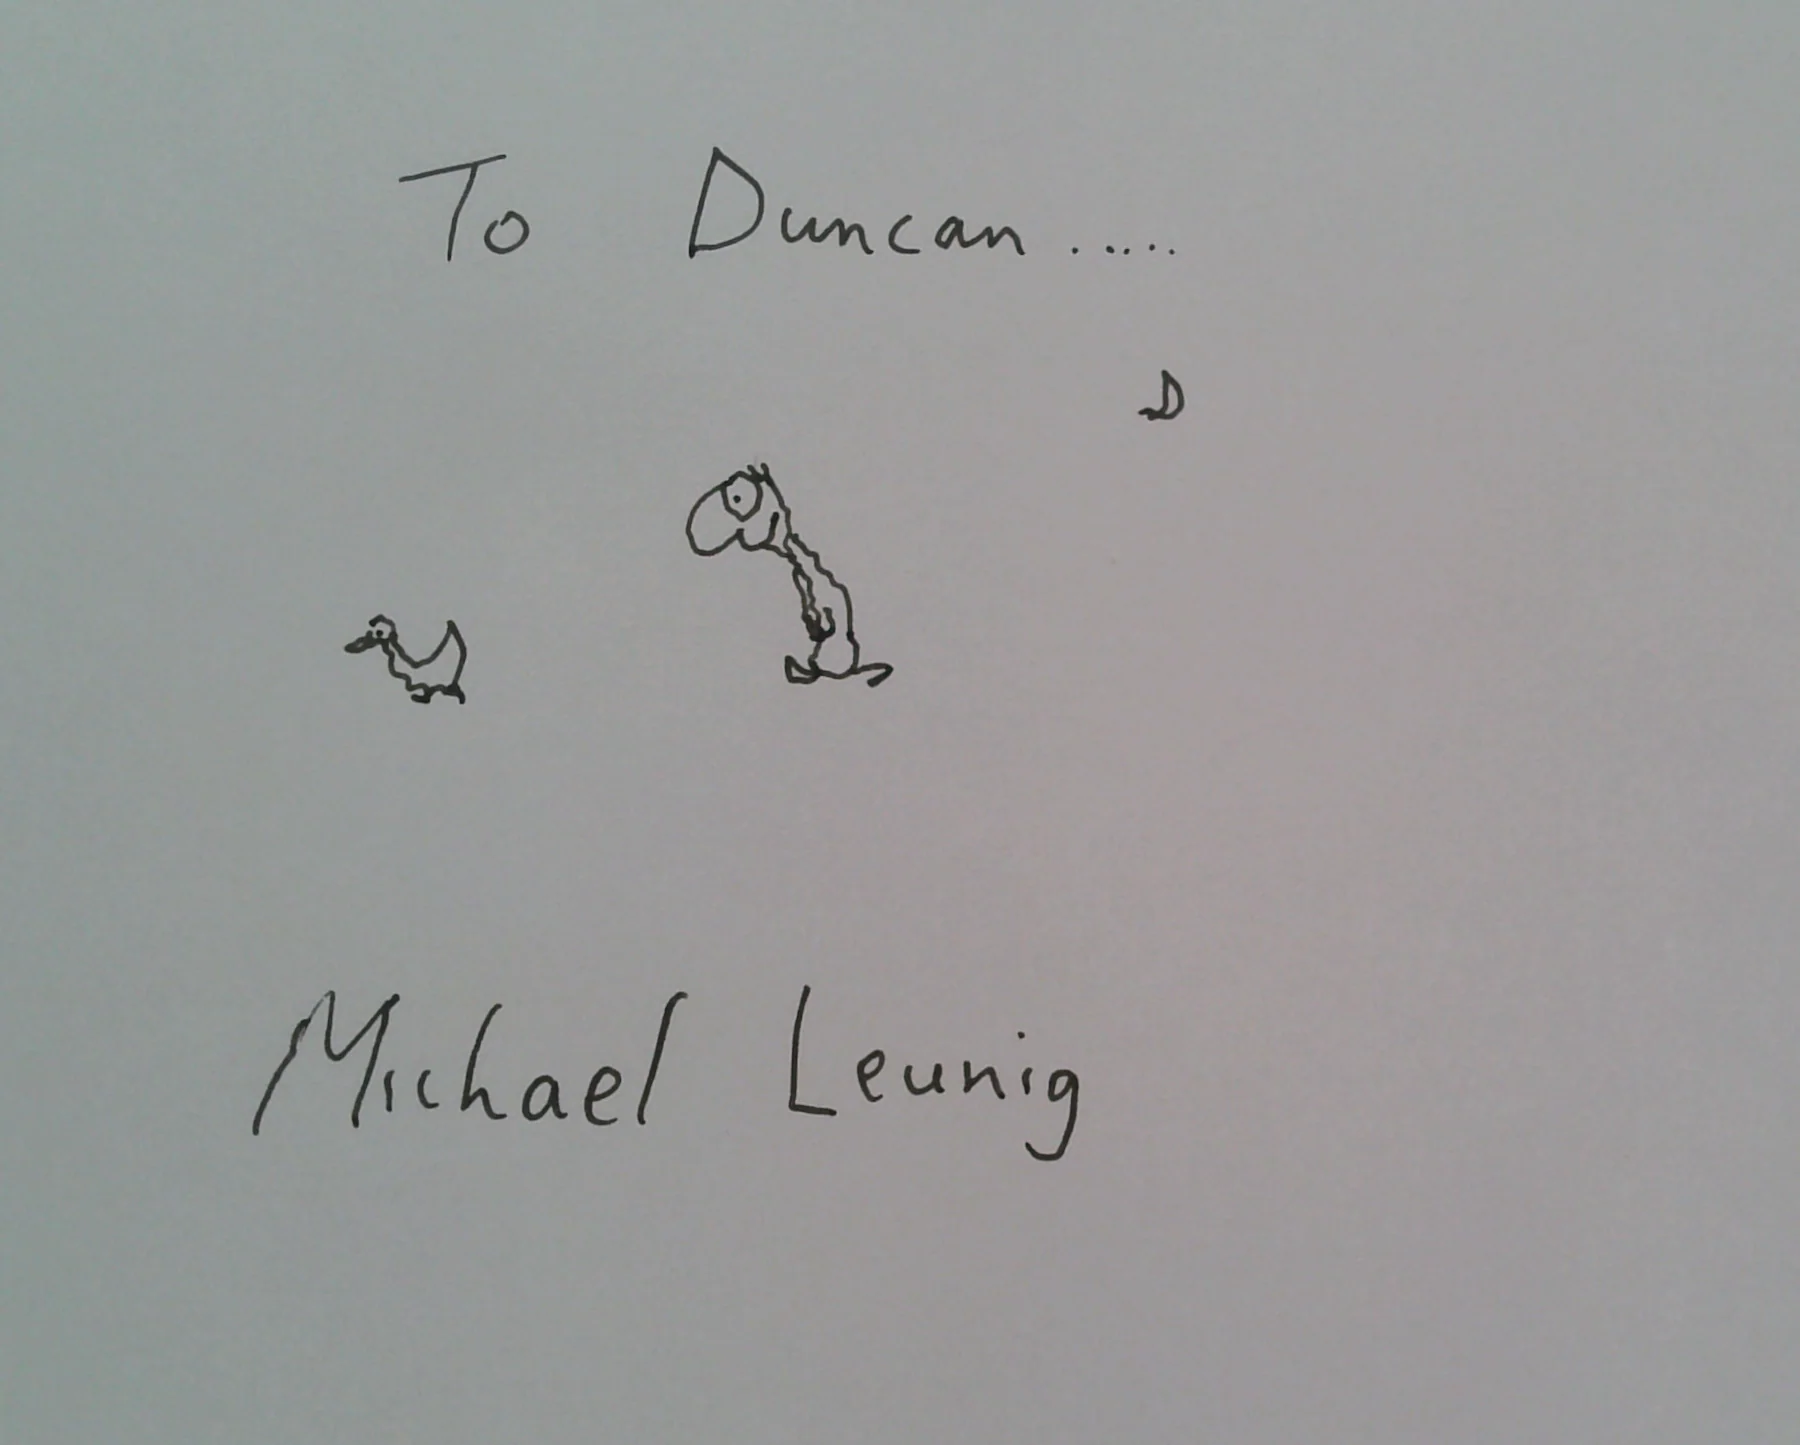 To Duncan.....
Michael Leunig